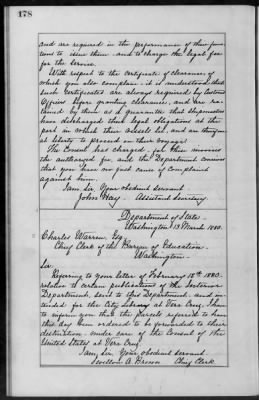 478
and are required in the performance of their func-
tions to issue them and to charge the legal fee
for the service.
With respect to the certificate of clearance of
which you also complain it is understood that
such certificates are always required by Customs
Officers before granting clearances, and are re-
tained by them as a guarantee that shipmasters
have discharged their legal obligations at the
port in which their vessels lie, and are therefore
at liberty to proceed on their voyage.
The Consul has charged you then merely
the authorized fee, and the Department conceives
that you have no just cause of complaint
against him.
I am, Sir, Your obedient servant
John Hay. Assistant Secretary
Department of State.
Washington 13 March 1880.
Charles Warren Esq.
Chief Clerk of the Bureau of Education.
Washington.
Sir,
Referring to your letter of February 18th 1880.
relative to certain publications of the Interior
Department, sent to this Department and in-
tended for the City Library at Vera Cruz, I have
to inform you that the parcels referred to have
this day been ordered to be forwarded to their
destination under care of the Consul of the
United States at Vera Cruz.
I am, Sir, Your obedient servant
Sevellon A. Brown Chief Clerk.